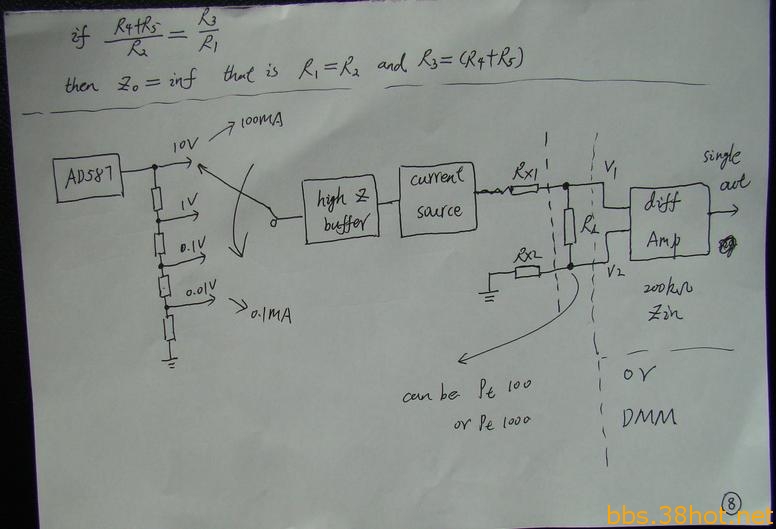 if (R4+R5)/R2 = R3/R1
then Zo = inf that is R1=R2 and R3=(R4+R5)
AD587
10V
100MA
1V
0.1V
0.01V
0.1MA
high Z
buffer
current
source
Rx1
Rx2
V1
V2
diff
Amp
single
out
200kΩ
Zin
can be Pt 100
or Pt 1000
or
DMM
8
bbs.38hot.net